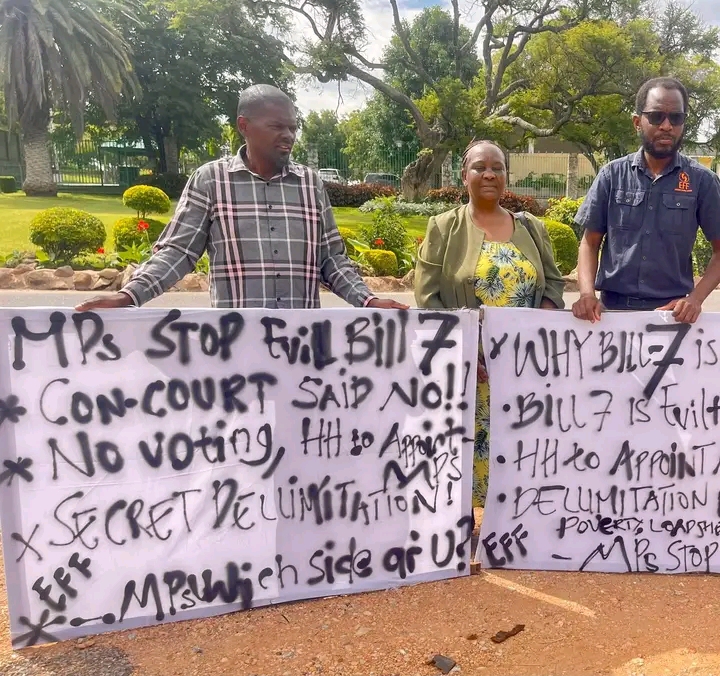 MPs STOP Evill Bill 7
* CON-COURT SAID NO!!
* No voting, HH to Appoint
MPs
x SECRET DELUMITATION!
EFF
* - MPs Which side ar U?
* WHY BILL-7 is
• BILL 7 is Evil
• HH to APPOINT
• DELUMITATION
POVERTY, LOADSHE
EFF - MPs STOP
EFF